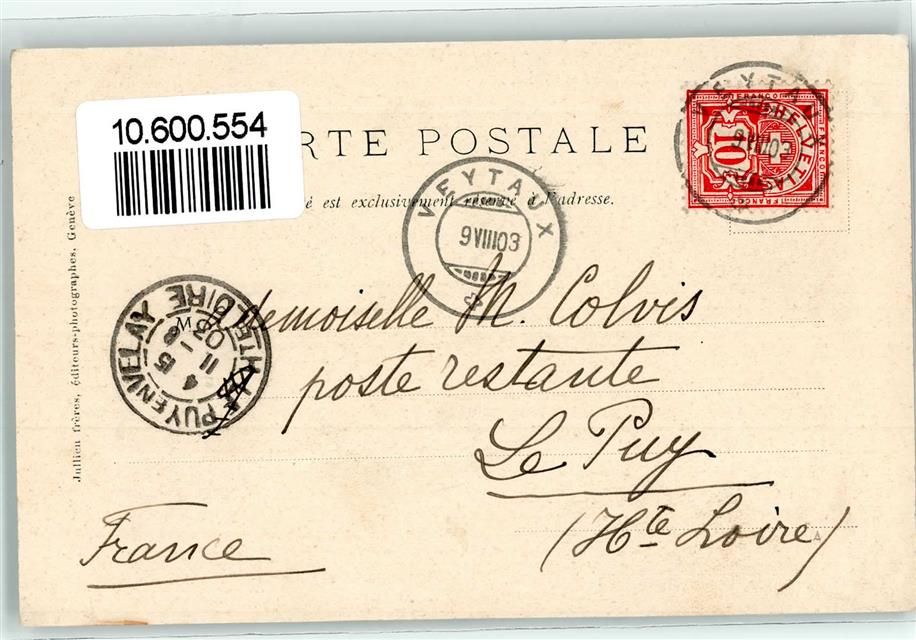 10.600.554
RTE POSTALE
é est exclusivement réservé à l'adresse.
VEYTAUX
9 VIII 03
VEYTAUX
9 VIII 03
FRANCO
HELVETIA
10
FRANCO
LE PUY EN VELAY
HTE LOIRE
4 15
11 - 8
03
Jullien frères, éditeurs-photographes, Genève
Mademoiselle M. Colvis
poste restante
Le Puy
(Hte Loire)
France